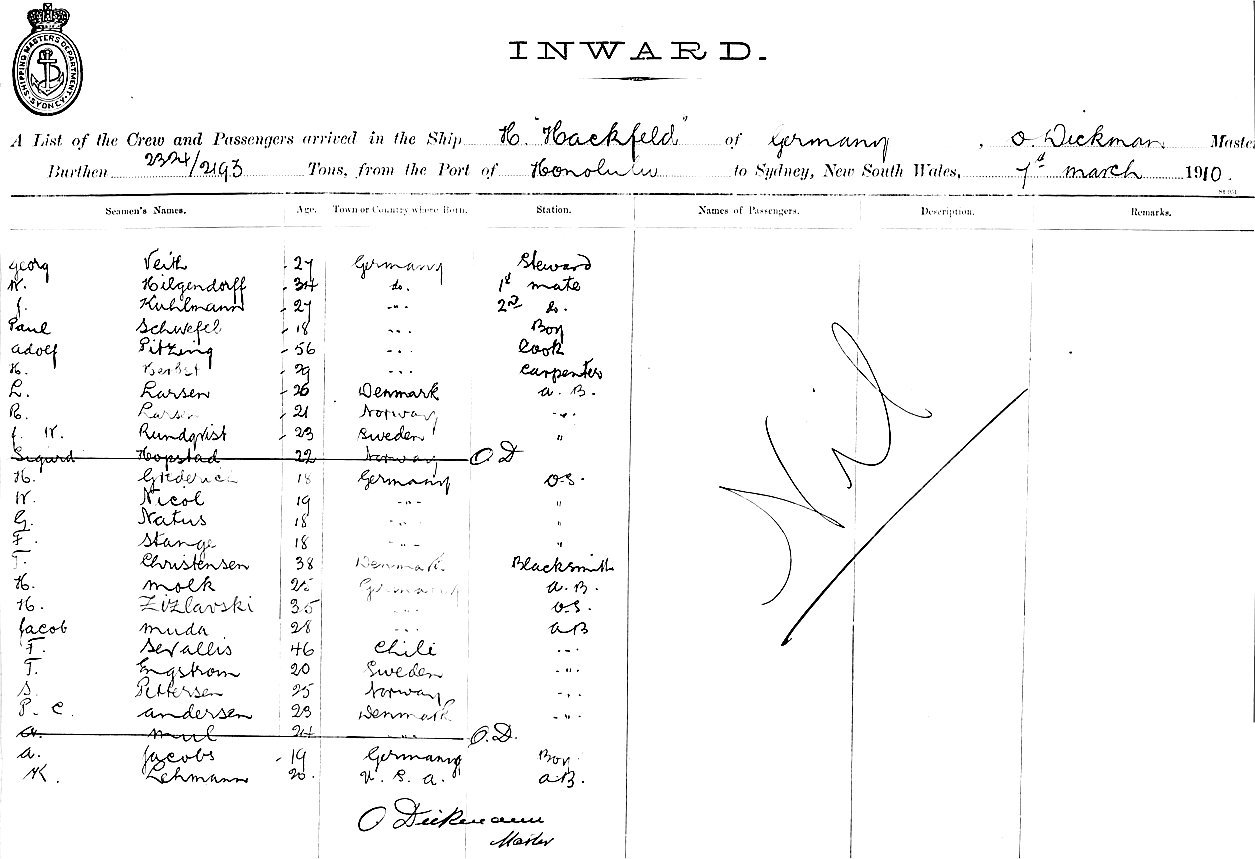 SHIPPING MASTERS DEPARTMENT SYDNEY
INWARD.
A List of the Crew and Passengers arrived in the Ship H. "Hackfeld" of Germany, O. Dickman Maste
Burthen 2324/2193 Tons, from the Port of Honolulu to Sydney, New South Wales, 7th march 1910.
Seamen's Names. Age. Town or Country where Born. Station. Names of Passengers. Description. Remarks.
georg Veith 27 Germany Steward
W. Hilgendorff 34 do. 1st mate
J. Kuhlmann 27 " 2nd do.
Paul Schwefel 18 " Boy
adolf Pitzing 56 " Cook
H. 29 " Carpenter
L. Larsen 26 Denmark a. B.
R. Larsen 21 Norway "
J. W. Rundqvist 23 Sweden "
Sigurd Hopstad 22 Norway O D
H. 18 Germany O.S.
W. Nicol 19 " "
G. Natus 18 " "
F. Stange 18 " "
T. Christensen 38 Denmark Blacksmith
H. molk 25 Germany a. B.
H. Zizlavski 35 " O.S.
Jacob muda 28 " a B
F. Sevallis 46 Chili "
T. Engstrom 20 Sweden "
S. Pettersen 25 Norway "
P. C. andersen 23 Denmark "
a. mul 24 " O. D.
a. Jacobs 19 Germany Boy
K. Lehmann 20. U. S. a. a B.
Nil
O Dickmann
Master